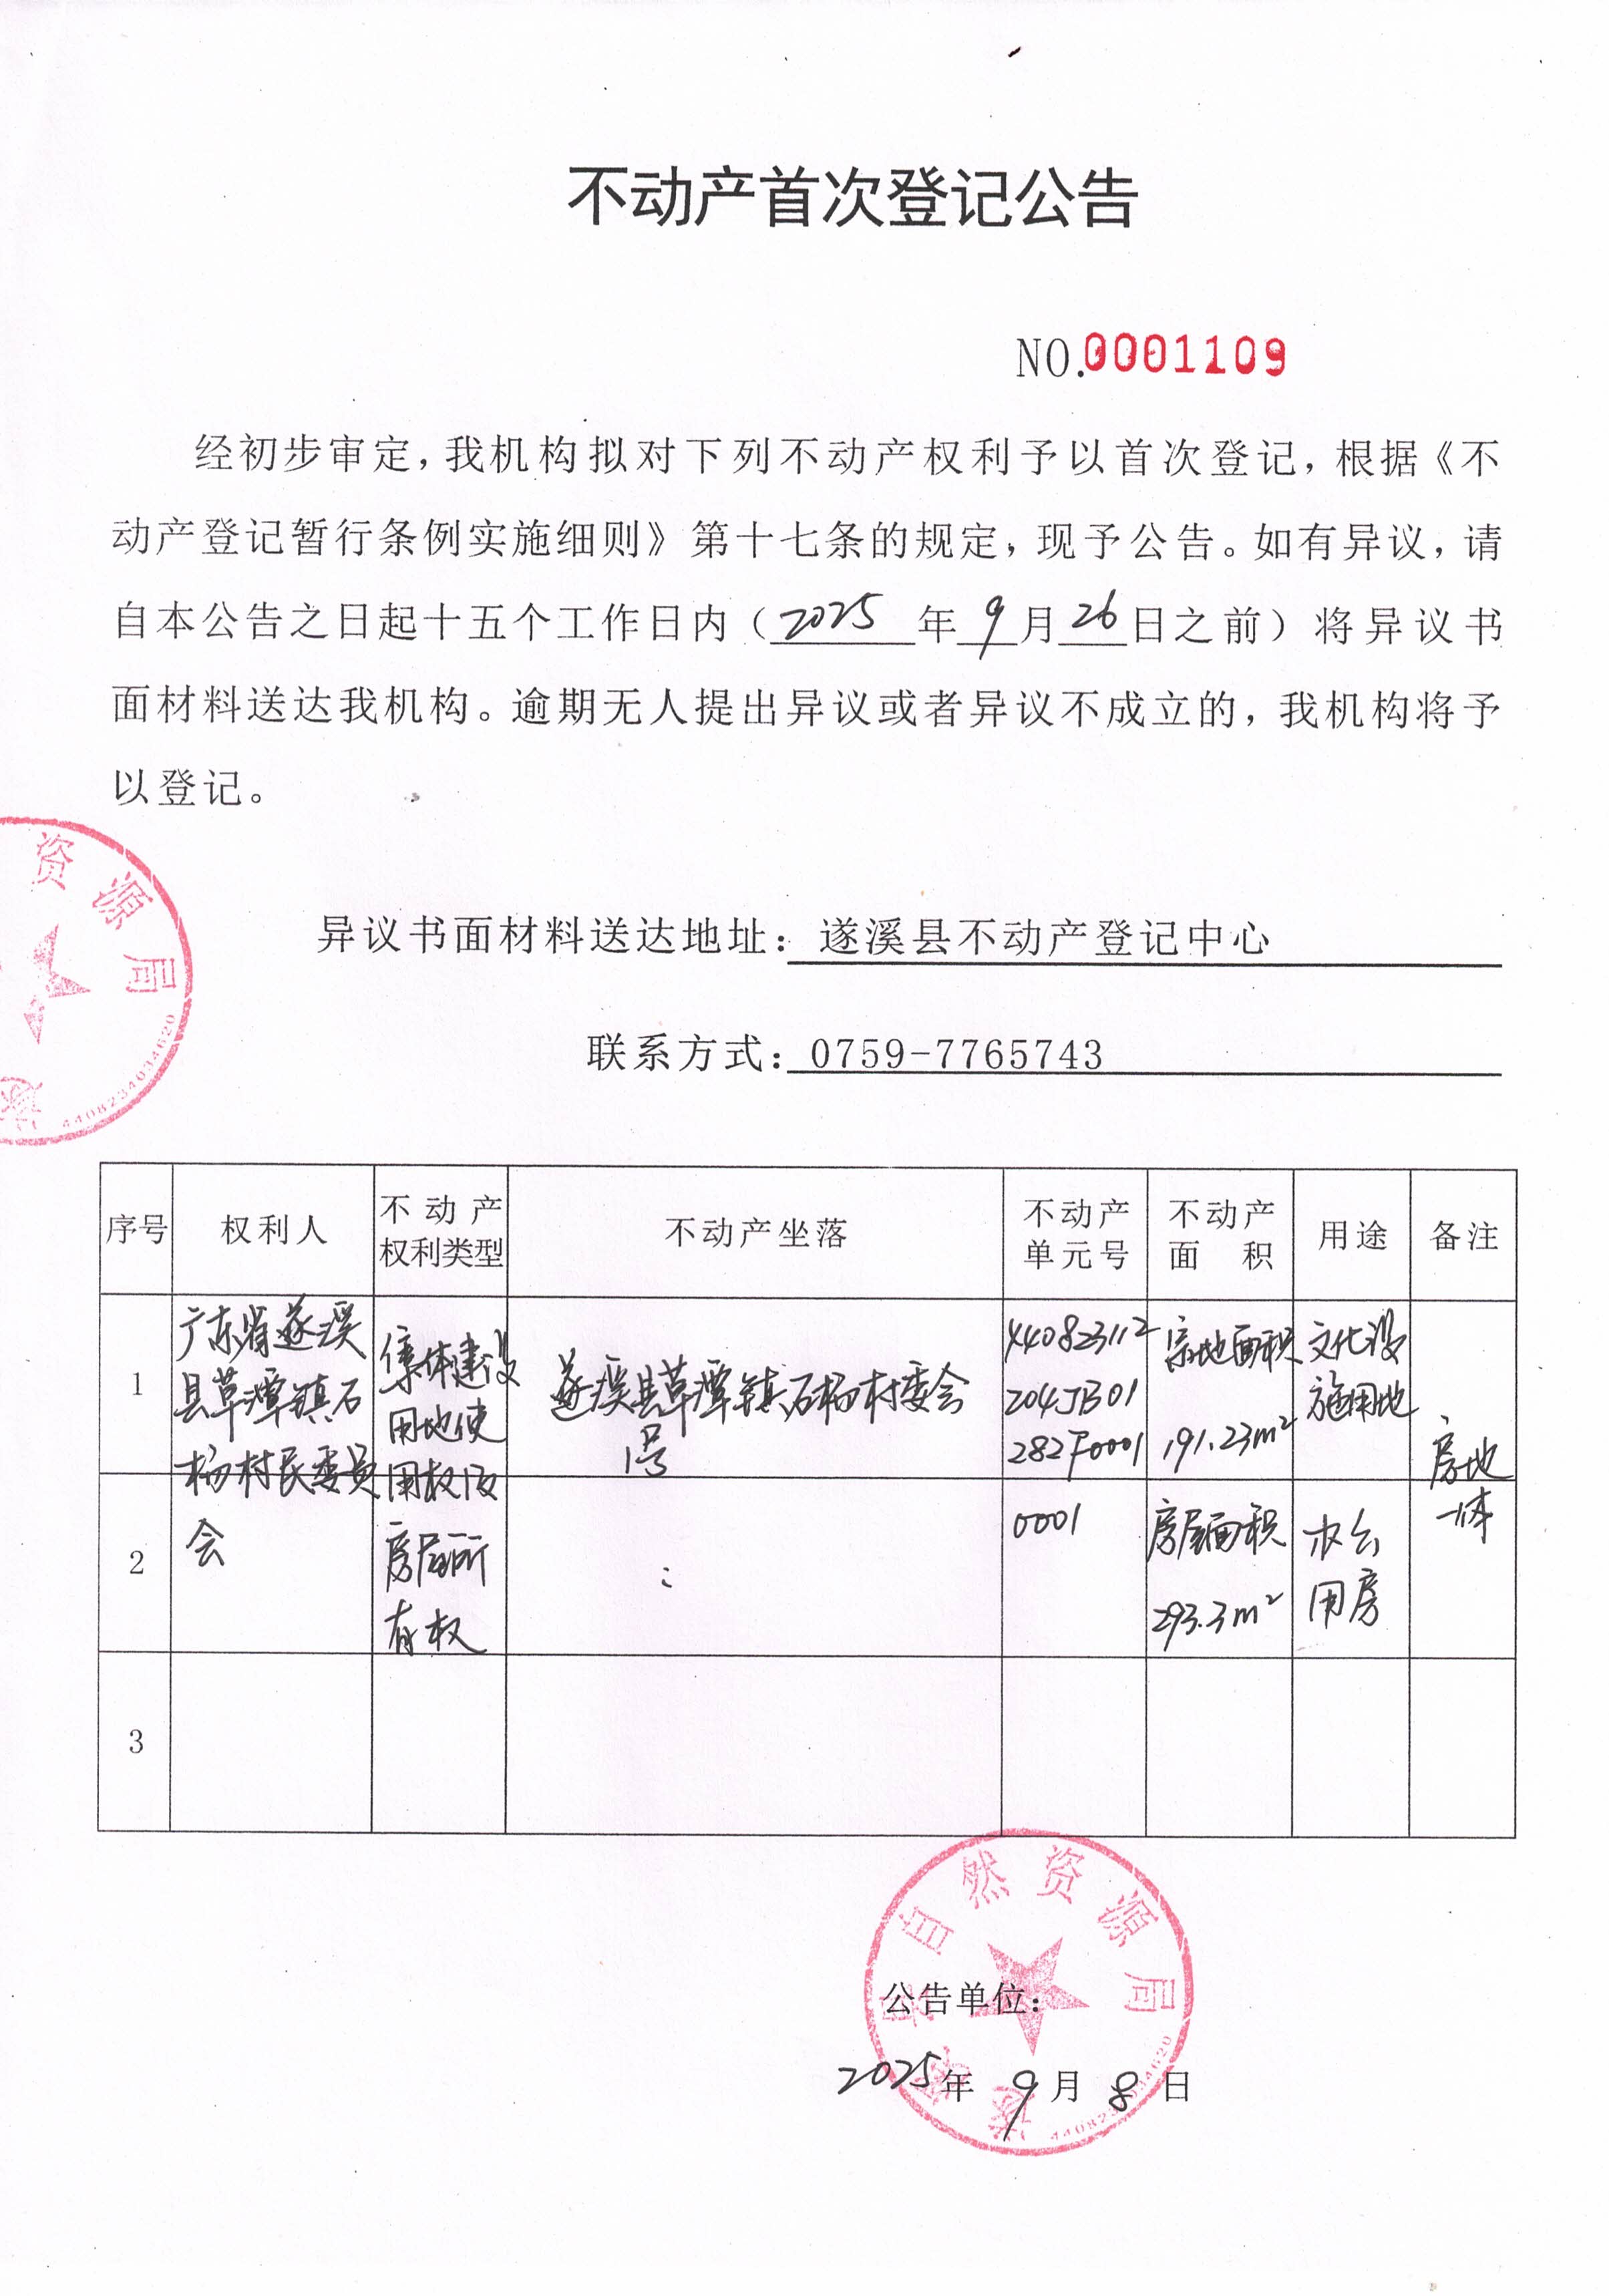 不动产首次登记公告
NO.0001109
经初步审定，我机构拟对下列不动产权利予以首次登记，根据《不
动产登记暂行条例实施细则》第十七条的规定，现予公告。如有异议，请
自本公告之日起十五个工作日内（2025年9月26日之前）将异议书
面材料送达我机构。逾期无人提出异议或者异议不成立的，我机构将予
以登记。
资源局
遂
4408234034620
异议书面材料送达地址：遂溪县不动产登记中心
联系方式：0759-7765743
序号
权利人
不动产
权利类型
不动产坐落
不动产
单元号
不动产
面积
用途
备注
1
广东省遂溪
县草潭镇石
杨村民委员
会
集体建设
用地使
用权及
房屋所
有权
遂溪县草潭镇石杨村委会
1号
440823112
204JB01
282F0001
0001
宗地面积
191.23m²
文化设
施用地
房地
一体
2
房屋面积
293.3m²
办公
用房
3
遂溪县自然资源局
4408234034620
公告单位：
2025年9月8日